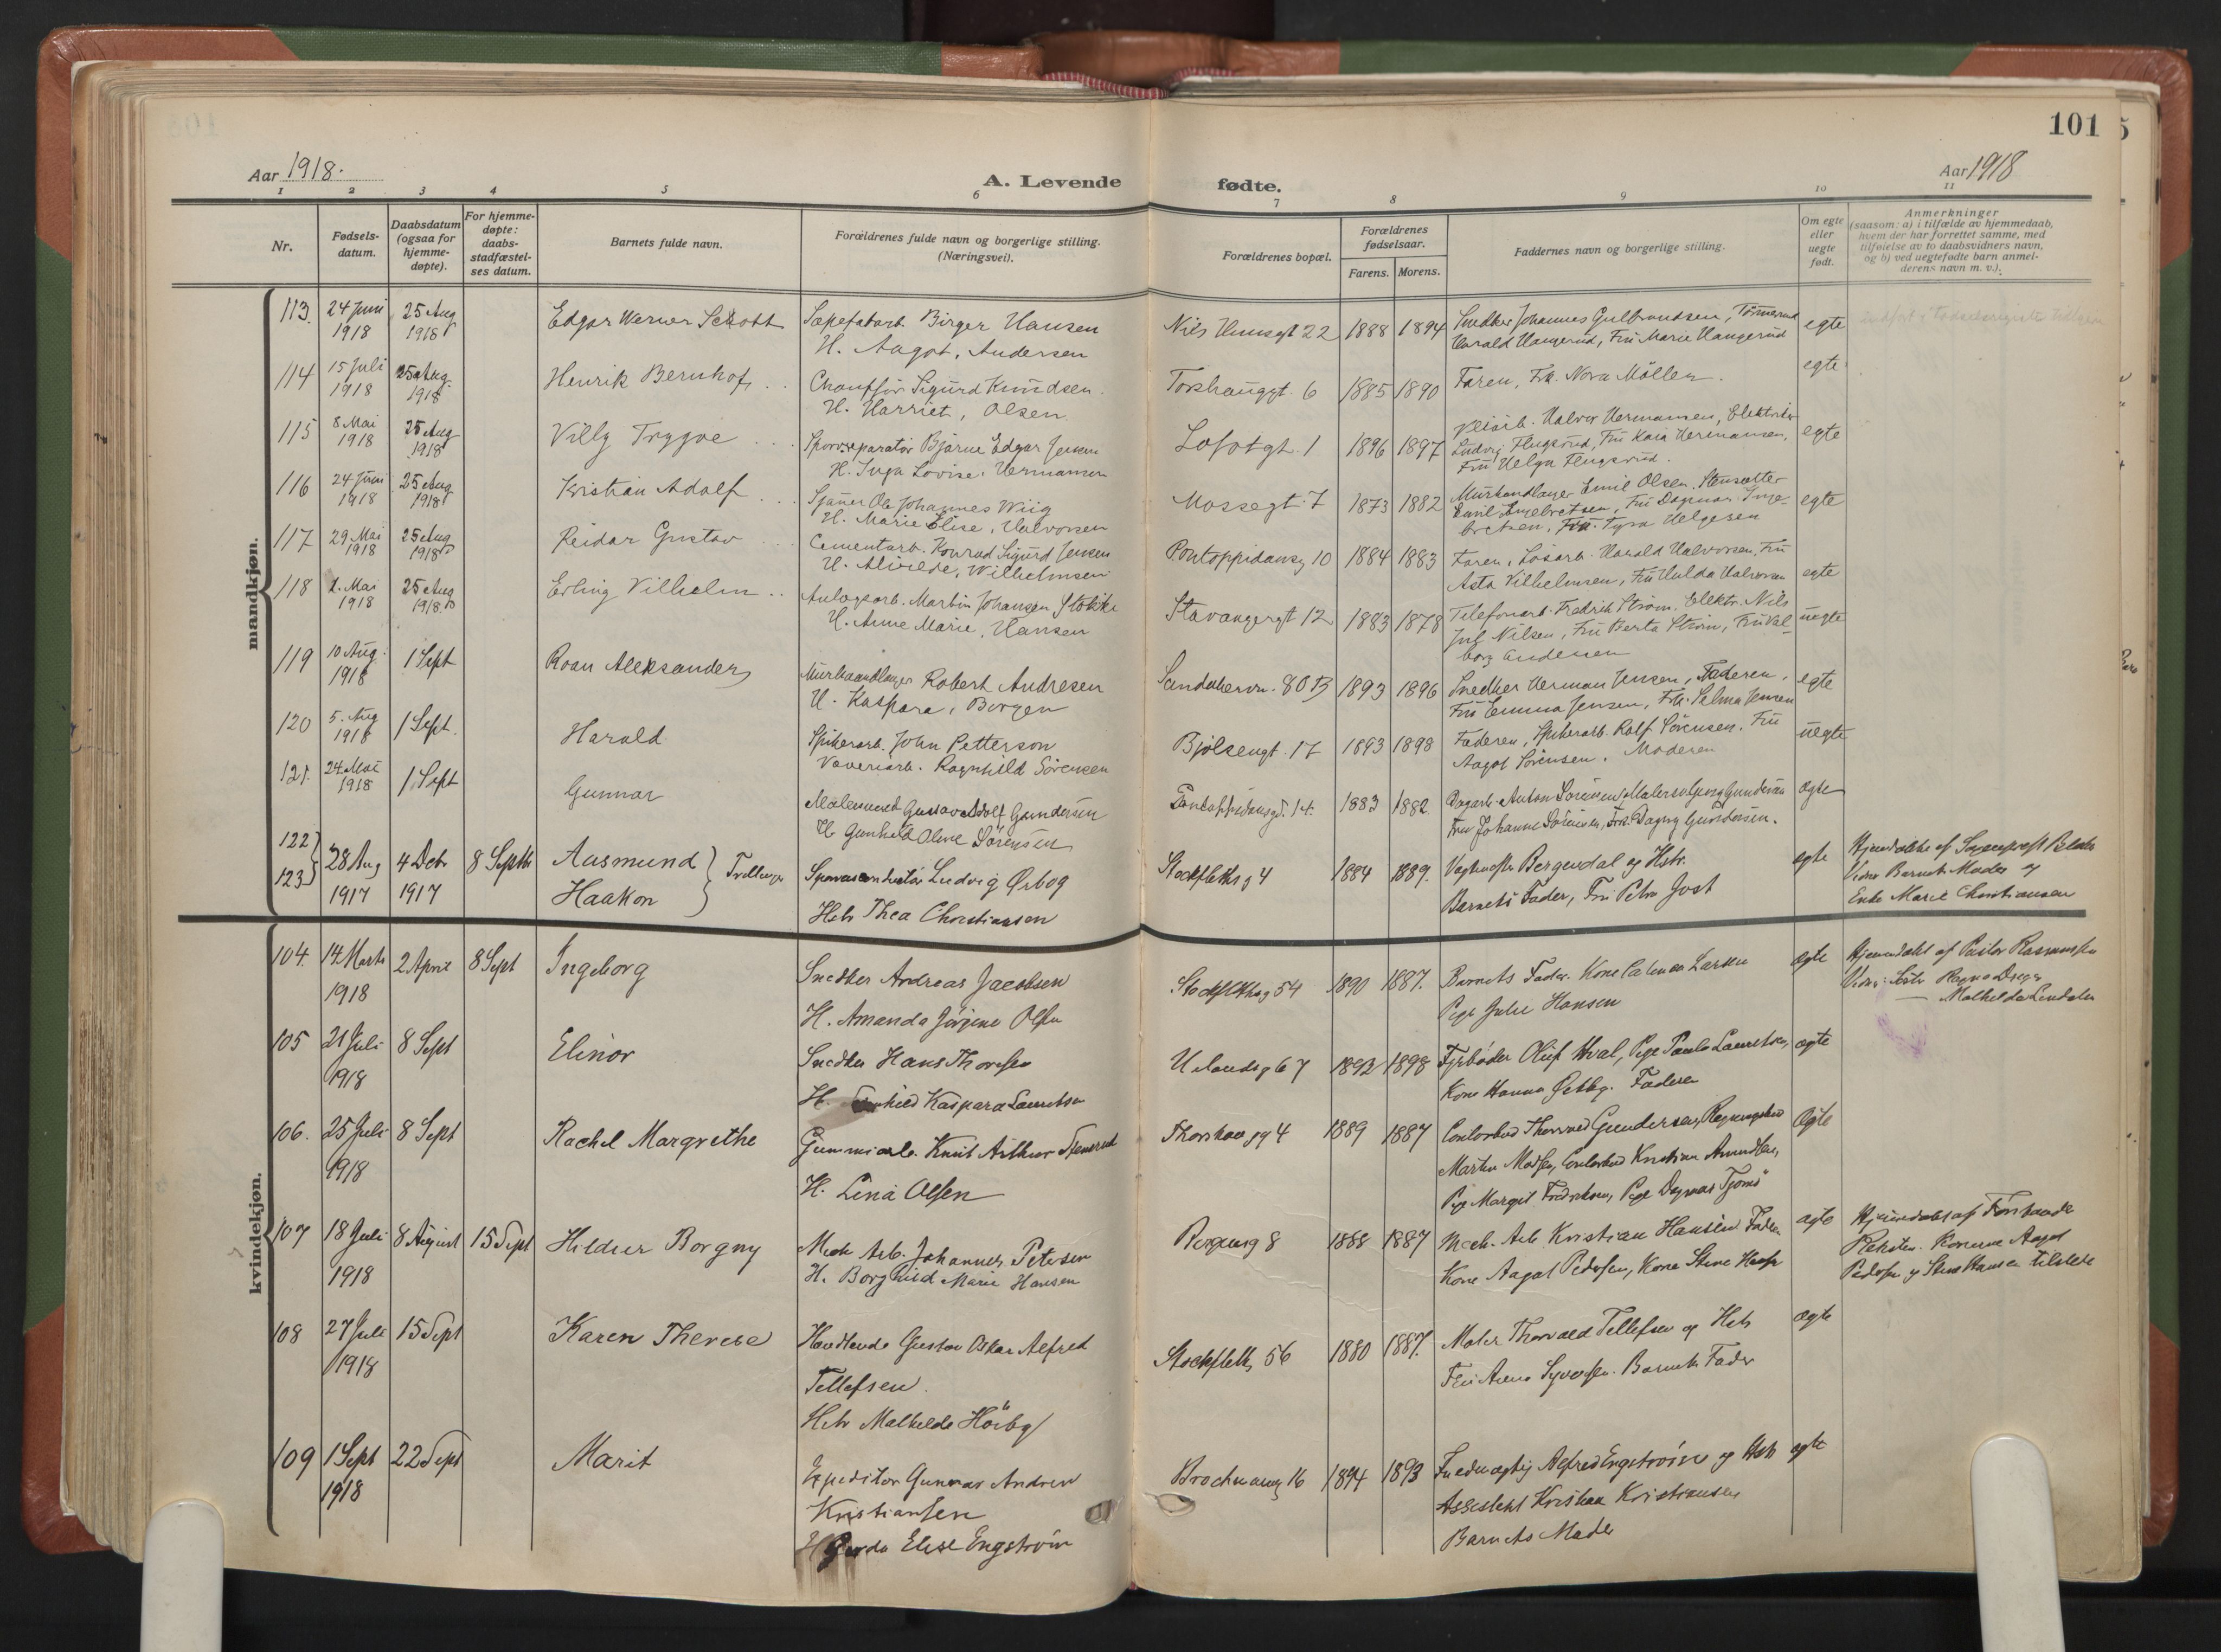 101
Aar 1918.
A. Levende
fødte.
Aar 1918
1 2 3 4 5 6 7 8 9 10 11
Nr.
Fødsels-
datum.
Daabsdatum
(ogsaa for
hjemme-
døpte).
For hjemme-
døpte:
daabs-
stadfæstel-
ses datum.
Barnets fulde navn.
Forældrenes fulde navn og borgerlige stilling.
(Næringsvei).
Forældrenes bopæl.
Forældrenes
fødselsaar.
Farens. Morens.
Faddernes navn og borgerlige stilling.
Om egte
eller
uegte
født.
Anmerkninger
(saasom: a) i tilfælde av hjemmedaab,
hvem der har forrettet samme, med
tilføielse av to daabsvidners navn,
og b) ved uegtefødte barn anmel-
derens navn m. v.).
mandkjøn.
113. 24 Juni 1918 25 Aug 1918 Edgar Werner Schott
Sæpefabarb. Birger Hansen
H. Aagot, Andersen
Nils Huusgt 22 1888 1894
Snedker Johannes Gulbrandsen, Tømmermd
Harald Haugerud, Fru Marie Haugerud
egte
114 15 Juli 1918 25 Aug. 1918 Henrik Bernhof
Chauffør Sigurd Knudsen
H. Harriet, Olsen
Torshauggt. 6 1885 1890
Faren, Frk. Nora Møller.
egte
115 8 Mai 1918 25 Aug 1918 Villy Trygve
Sporvreparatør Bjarne Edgar Jensen
H. Inga Lovise, Hermansen
Lofotgt. 1 1896 1897
Halvor Hermansen, Elektriker
Ludvig Flugsrud, Fru Kaia Hermansen,
Fru Helga Flugsrud.
egte
116 24 Juni 1918 25 Aug 1918 Kristian Adolf
Sjauer Ole Johannes Wiig
H. Marie Elise, Halvorsen
Mossegt. 7 1873 1882
Murhandlager Emil Olsen, Stensætter
Emil Ingebretsen, Fru Dagmar Inge-
bretsen, Frk. Tyra Helgesen
egte
117 29 Mai 1918 25 Aug 1918 Reidar Gustav
Cementarb. Konrad Sigurd Jensen
H. Alvilde, Wilhelmsen
Pontoppidansg 10 1884 1883
Faren, Løsarb. Harald Halvorsen, Fru
Asta Vilhelmsen, Fru Hulda Halvorsen
egte
118 1. Mai 1918 25 Aug 1918 Erling Vilhelm
Anlægsarb. Martin Johansen Stokke
H. Anne Marie, Hansen
Stavangergt 12 1883 1878
Telefonarb. Fredrik Strøm, Elektr. Nils
Jul Nilsen, Fru Berta Strøm, Fru Val-
borg Andersen
uegte
119 10 Aug. 1918 1 Sept Roan Aleksander
Murhaandlanger Robert Andresen
H. Kaspara, Borgen
Sandakerv. 80 B 1893 1896
Snedker Herman Jensen, Faderen,
Fru Emma Jensen, Frk. Selma Jensen
egte
120 5. Aug 1918 1 Sept. Harald
Spikerarb. John Petterson
Væveriarb. Ragnhild Sörensen
Bjølsengt. 17 1893 1898
Faderen, Spikerarb. Rolf Sörensen, Fru
Aagot Sörensen. Moderen
uegte
121. 24. Mai 1918 1 Sept Gunnar
Malermest Gustav Adolf Gundersen
H. Gunhild Oline Sörensen
Pontoppidansgd. 14. 1883 1882.
Dagarb Anton Sörensen, Maler Georg Gundersen
Fru Johanne Sörensen, Frk. Dagny Gundersen.
egte
122
123 28 Aug 1917 4 Dcbr 1917 8 Septb Aasmund
Haakon Trillinger
Sporveiskonduktør Ludvig Ørbog
Htr Thea Christiansen
Stockflethsg 4 1884 1889.
Vagtmester Bergendal og Hstr.
Barnets Fader, Fru Petra Jost
egte
Hjemdøbte af Sogneprest
Vidner Barnets Moder og
Enke Marie Christiansen
kvindekjøn.
104. 14 Marts 1918 2 April 8 Sept Ingeborg
Snedker Andreas Jacobsen
H. Amanda Jörgine Olsen
Stockflethsg 54 1890 1887.
Barnets Fader. Kone Larsen
Pige Julie Hansen
egte
Hjemmedøbt af Pastor Rasmussen
Vidner: Søster Ragna
Mathilde Lindalen
105 21 Juli 1918 8 Sept Elinor
Snedker Hans Thoresen
H. Kaspara Lauritsen
Uelandsg 67 1892 1898
Fyrbøder Oluf Hval, Pige Paula Lauritsen,
Kone Hanna Østby. Faderen
egte
106. 25 Juli 1918 8 Sept Rachel Margrethe
Gummiarb. Knut Arthur Stenerud
H. Lina Olsen
Thorshaugg 4 1889 1887
Contorbud Thorvald Gundersen, Regningsbud
Martin Madsen, Contorbud Kristian Amundsen,
Pige Margit Fredriksen, Pige Dagmar Tjomö
Egte
107 18 Juli 1918 8 August 15 Sept Hildur Borgny
Mek Arb. Johannes Petersen
H. Borghild Marie Hansen
Bergensg 8 1888 1887
Mech. Arb Kristian Hansen Faderen
Kone Aagot Pedersen, Kone Stine Hansen
egte
Hjemmedøbt af Forstander
Konerne Aagot
Pedersen og Stine Hansen tilstede
108 27 Juli 1918 15 Sept Karen Therese
Handlende Gustav Oskar Alfred
Tellefsen.
Htr Mathilde Höiby
Stockflethg 56 1880 1887.
Maler Thorvald Tellefsen og Htr
Fru Anna Syversen. Barnets Fader
egte
109 1 Sept 1918 22 Sept Marit
Expeditør Gunnar Andrew
Kristiansen
H Gerda Elise Engström
Brochmansg 16 1894 1893
Fuldmægtig Alfred Engström og Hstr
Assistent Kristian Kristiansen
Barnets Moder
egte